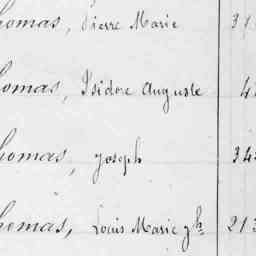 homas, Pierre Marie 31
homas, Isidore Auguste 4
homas, joseph 34
homas, Louis Marie jh 213